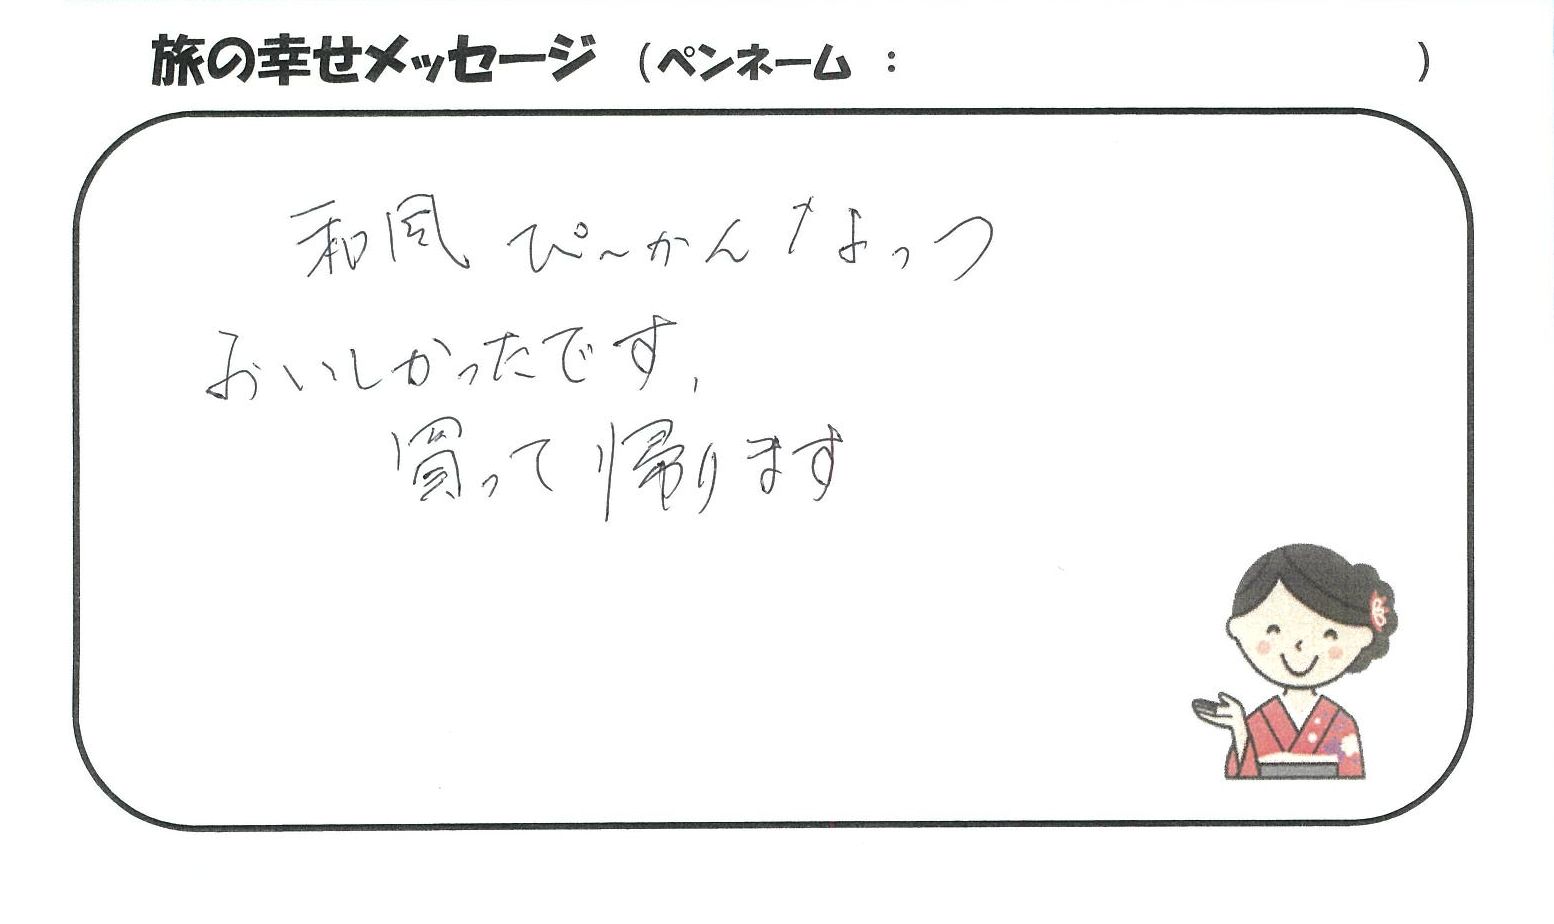 旅の幸せメッセージ (ペンネーム : )
和風 ぴ~かんなっつ
おいしかったです、
買って帰ります